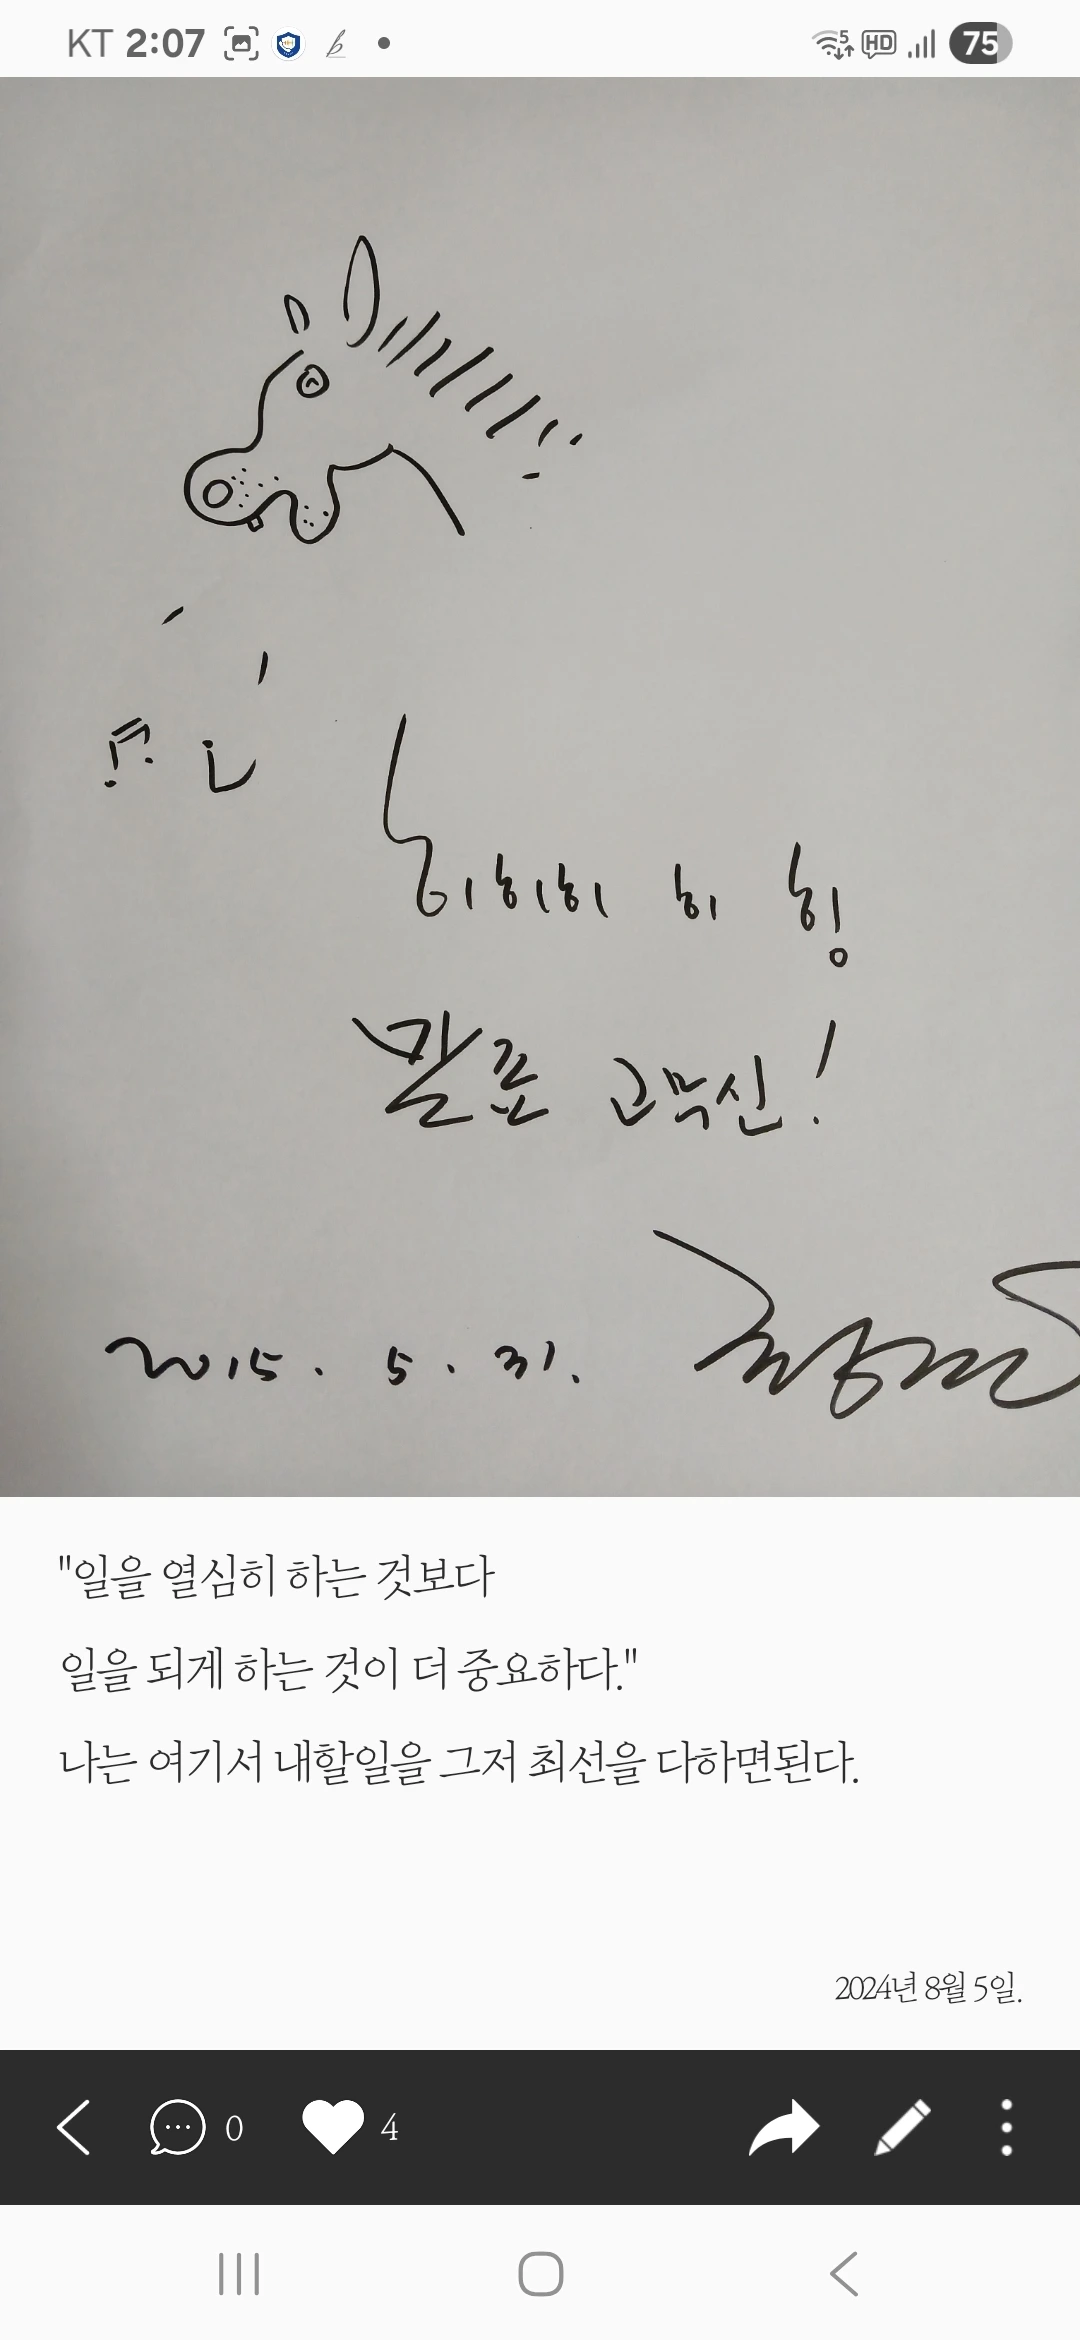 KT 2:07
5 HD 75
히히히 히 힝
말표 고무신!
2015. 5. 31.
"일을 열심히 하는 것보다
일을 되게 하는 것이 더 중요하다."
나는 여기서 내할일을 그저 최선을 다하면된다.
2024년 8월 5일.
0 4